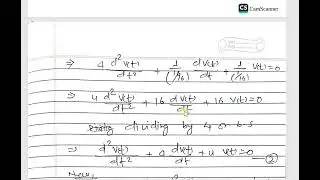 CS CamScanner
⇒ 4 d²v(t)/dt² + 1/(1/16) dv(t)/dt + 1/(1/16) v(t)=0
⇒ 4 d²v(t)/dt² + 16 dv(t)/dt + 16 v(t)=0
dividing by 4 on b.s
⇒ d²v(t)/dt² + 4 dv(t)/dt + 4 v(t)=0 — ②